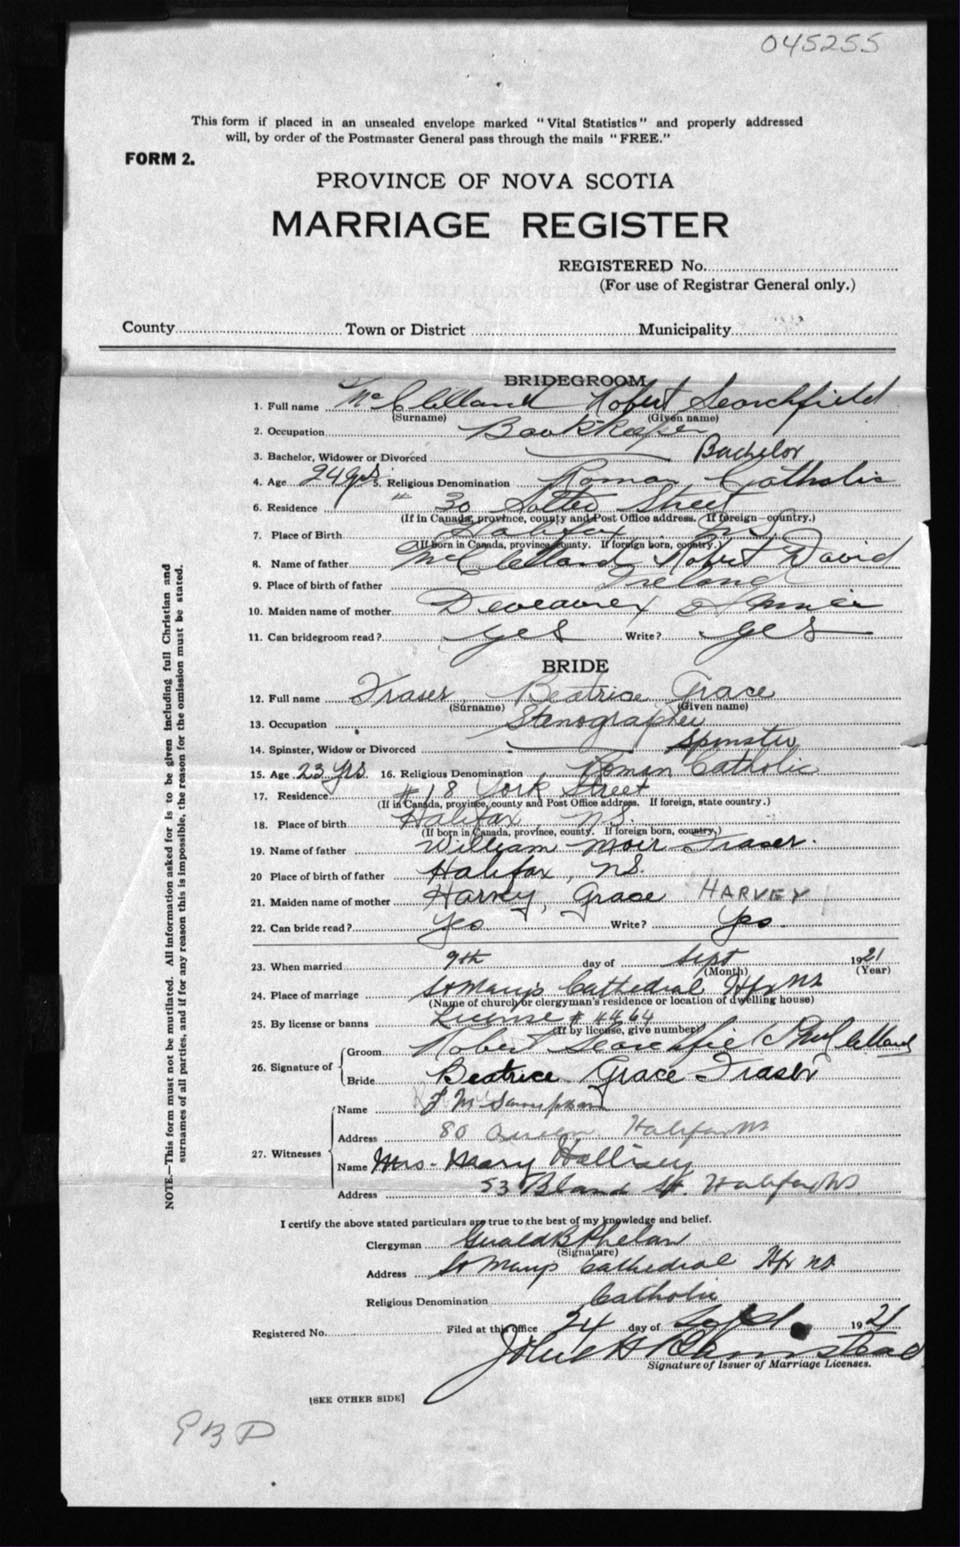 045255
This form if placed in an unsealed envelope marked "Vital Statistics" and properly addressed
will, by order of the Postmaster General pass through the mails "FREE."
FORM 2.
PROVINCE OF NOVA SCOTIA
MARRIAGE REGISTER
REGISTERED No.
(For use of Registrar General only.)
County Town or District Municipality
BRIDEGROOM
1. Full name McClelland Robert Scorchfield
(Surname) (Given name)
2. Occupation Bookkeeper
3. Bachelor, Widower or Divorced Bachelor
4. Age 24 yrs 5. Religious Denomination Roman Catholic
6. Residence # 30 Salter Street
(If in Canada, province, county and Post Office address. If foreign—country.)
7. Place of Birth Halifax NS
(If born in Canada, province, county. If foreign born, country.)
8. Name of father McClelland, Robert David
9. Place of birth of father Ireland
10. Maiden name of mother
11. Can bridegroom read? yes Write? yes
BRIDE
12. Full name Fraser, Beatrice Grace
(Surname) (Given name)
13. Occupation Stenographer
14. Spinster, Widow or Divorced Spinster
15. Age 23 yrs. 16. Religious Denomination Roman Catholic
17. Residence #18 York Street
(If in Canada, province, county and Post Office address. If foreign, state country.)
18. Place of birth Halifax, NS.
(If born in Canada, province, county. If foreign born, country.)
19. Name of father William Moir Fraser.
20 Place of birth of father Halifax, NS.
21. Maiden name of mother Harvey, Grace HARVEY
22. Can bride read? Yes Write? Yes.
23. When married 9th day of Sept 1921
(Month) (Year)
24. Place of marriage St Marys Cathedral Hfx NS
(Name of church or clergyman's residence or location of dwelling house)
25. By license or banns License # 4464
(If by license, give number)
26. Signature of
Groom Robert Scorchfield McClelland
Bride Beatrice Grace Fraser
27. Witnesses
Name
Address 80 Queen, Halifax NS
Name Mrs. Mary Hallisey
Address 53 Bland St. Halifax NS
I certify the above stated particulars are true to the best of my knowledge and belief.
Clergyman Gerald B Phelan
(Signature)
Address St Marys Cathedral Hfx NS
Religious Denomination Catholic
Registered No. Filed at this office 24 day of Sept 1921
Signature of Issuer of Marriage Licenses.
[SEE OTHER SIDE]
NOTE.—This form must not be mutilated. All information asked for is to be given including full Christian and
surnames of all parties, and if for any reason this is impossible, the reason for the omission must be stated.